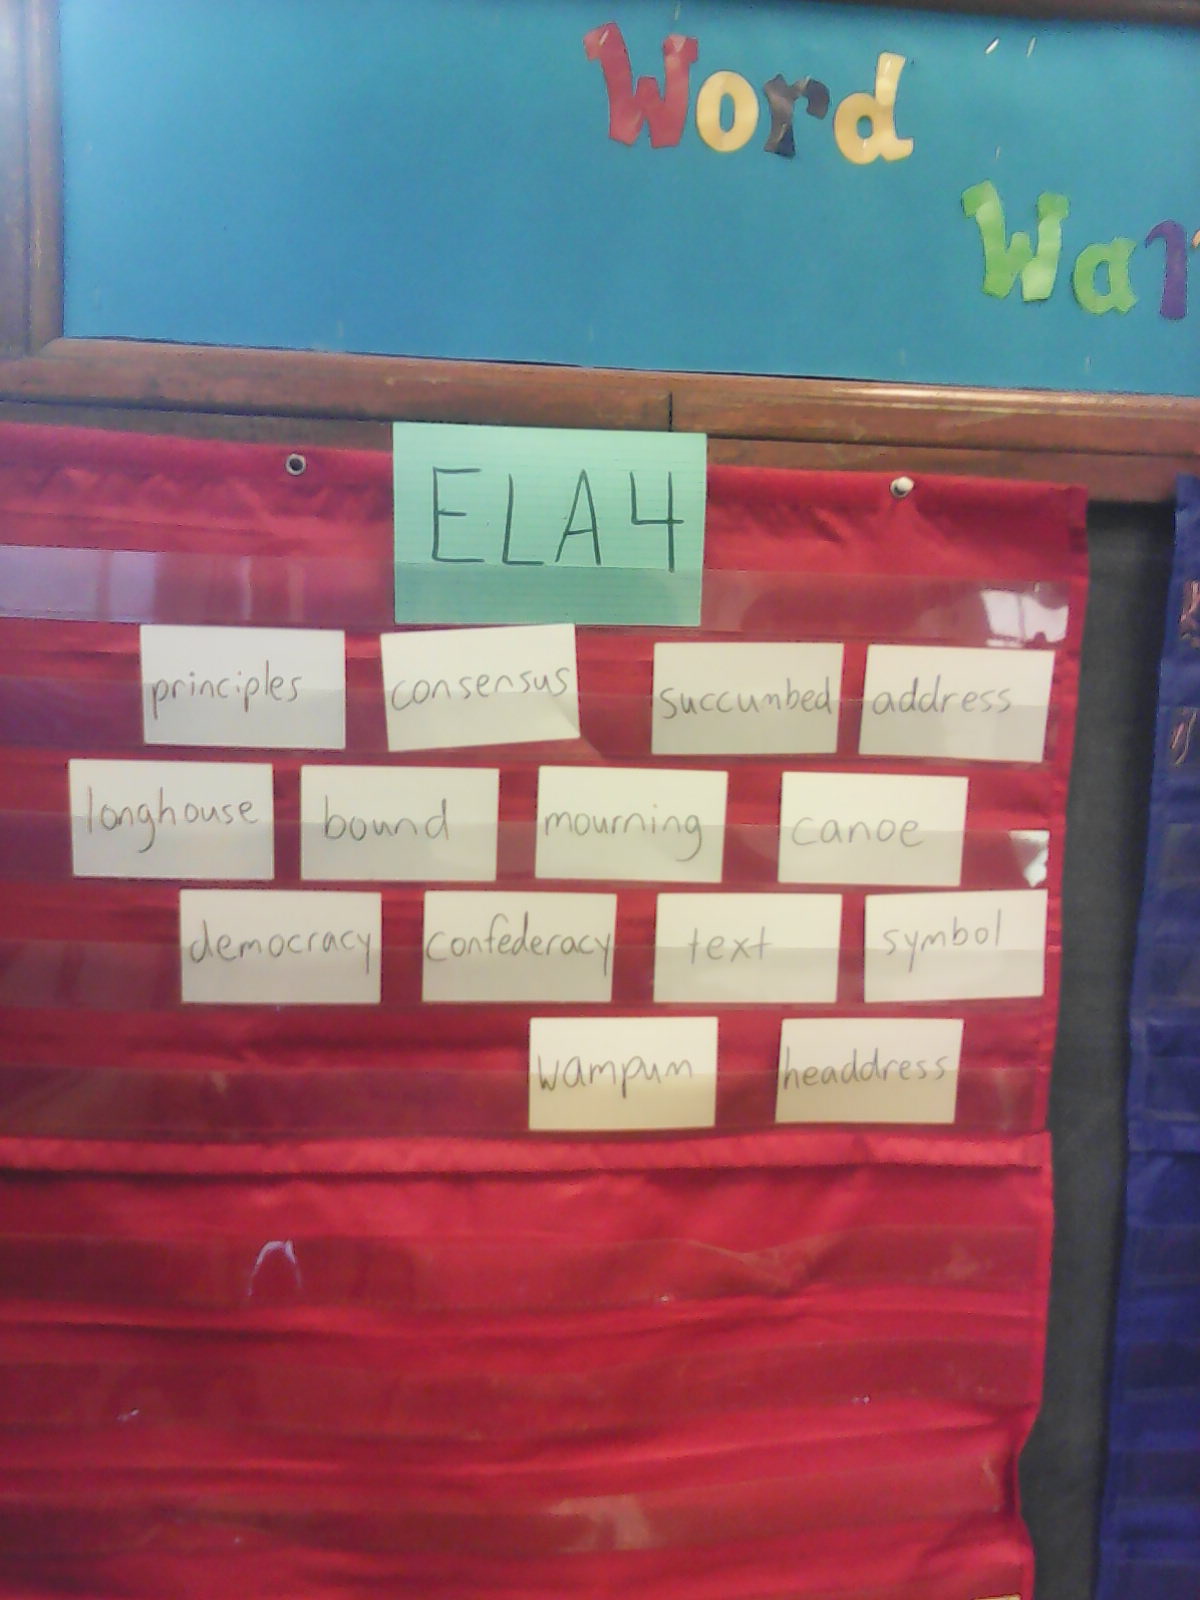 Word
Wall
ELA 4
principles consensus succumbed address
longhouse bound mourning canoe
democracy confederacy text symbol
wampum headdress